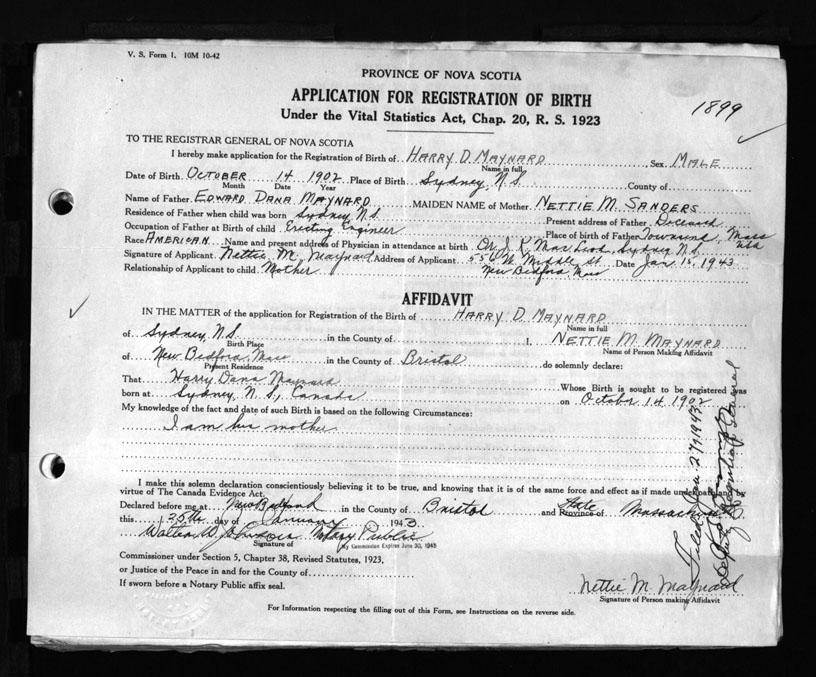 V. S. Form 1. 10M 10-42
PROVINCE OF NOVA SCOTIA
APPLICATION FOR REGISTRATION OF BIRTH
1899
Under the Vital Statistics Act, Chap. 20, R. S. 1923
TO THE REGISTRAR GENERAL OF NOVA SCOTIA
I hereby make application for the Registration of Birth of HARRY D. MAYNARD Sex MALE
Name in full
Date of Birth OCTOBER 14 1902 Place of Birth Sydney, N.S. County of
Month Date Year
Name of Father EDWARD DANA MAYNARD MAIDEN NAME of Mother NETTIE M. SANDERS
Residence of Father when child was born Sydney N.S. Present address of Father Deceased
Occupation of Father at Birth of child Erecting Engineer Place of birth of Father Townsend, Mass
Race AMERICAN Name and present address of Physician in attendance at birth Dr. J. K. Sydney N.S. USA
Signature of Applicant Nettie M. Maynard Address of Applicant 556 W. Middle St. Date Jan 15, 1943
Relationship of Applicant to child Mother New Bedford, Mass
AFFIDAVIT
IN THE MATTER of the application for Registration of the Birth of HARRY D. MAYNARD
Name in full
of Sydney, N.S. in the County of I, NETTIE M. MAYNARD
Birth Place Name of Person Making Affidavit
of New Bedford, Mass in the County of Bristol do solemnly declare:
Present Residence
That Harry Dana Maynard Whose Birth is sought to be registered was
born at Sydney, N. S., Canada on October 14 1902
My knowledge of the fact and date of such Birth is based on the following Circumstances:
I am his mother
I make this solemn declaration conscientiously believing it to be true, and knowing that it is of the same force and effect as if made under oath and by
virtue of The Canada Evidence Act.
Declared before me at New Bedford in the County of Bristol State and Province of Massachusetts
this 25th day of January 1943
Walter Notary Public
Signature of My Commission Expires June 30, 1943
Commissioner under Section 5, Chapter 38, Revised Statutes, 1923,
or Justice of the Peace in and for the County of
If sworn before a Notary Public affix seal.
Nettie M. Maynard
Signature of Person making Affidavit
For Information respecting the filling out of this Form, see Instructions on the reverse side.
Deputy Registrar General